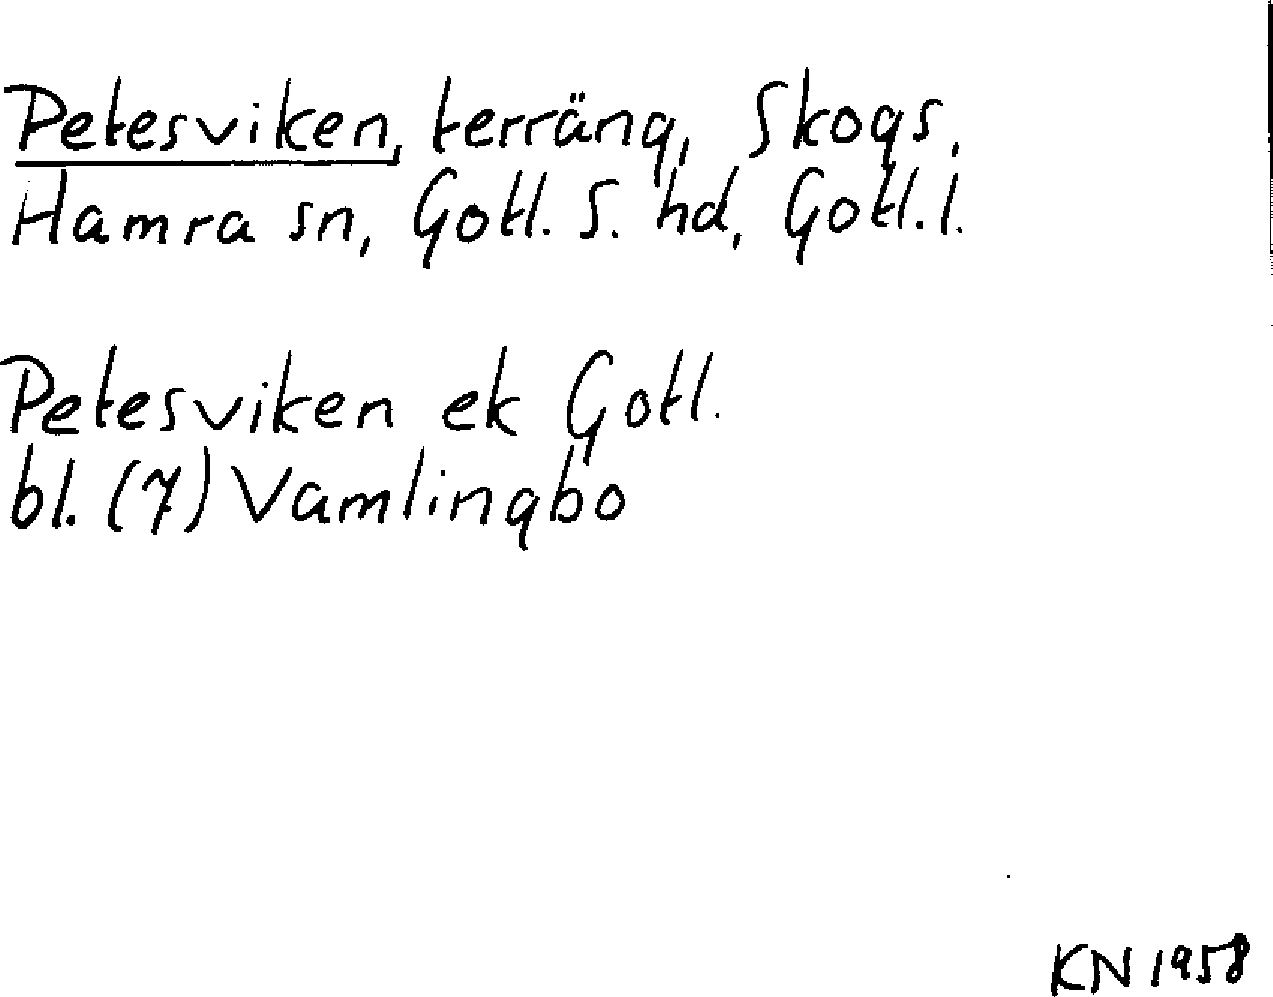 Petesviken, terräng, Skogs,
Hamra sn, Gotl. S. hd, Gotl. l.
Petesviken ek Gotl.
bl. (7) Vamlingbo
KN 1958